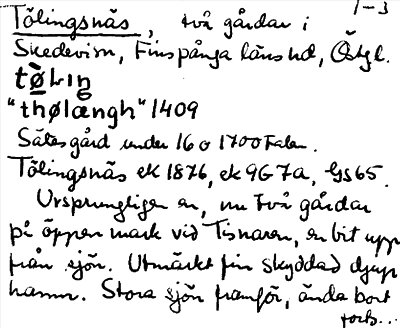 1-3
Tölingsnäs, två gårdar i
Skedevi sn, Finspånga läns hd, Östgl.
tø̱lıŋ
"thølængh" 1409
Sätesgård under 16 o 1700talen.
Tölingsnäs ek 1876, ek 9G 7a, GS65.
Ursprungligen en, nu två gårdar
på öppen mark vid Tisnaren, en bit upp
från sjön. Utmärkt fin skyddad djup
hamn. Stora sjön framför, ända bort
forts...